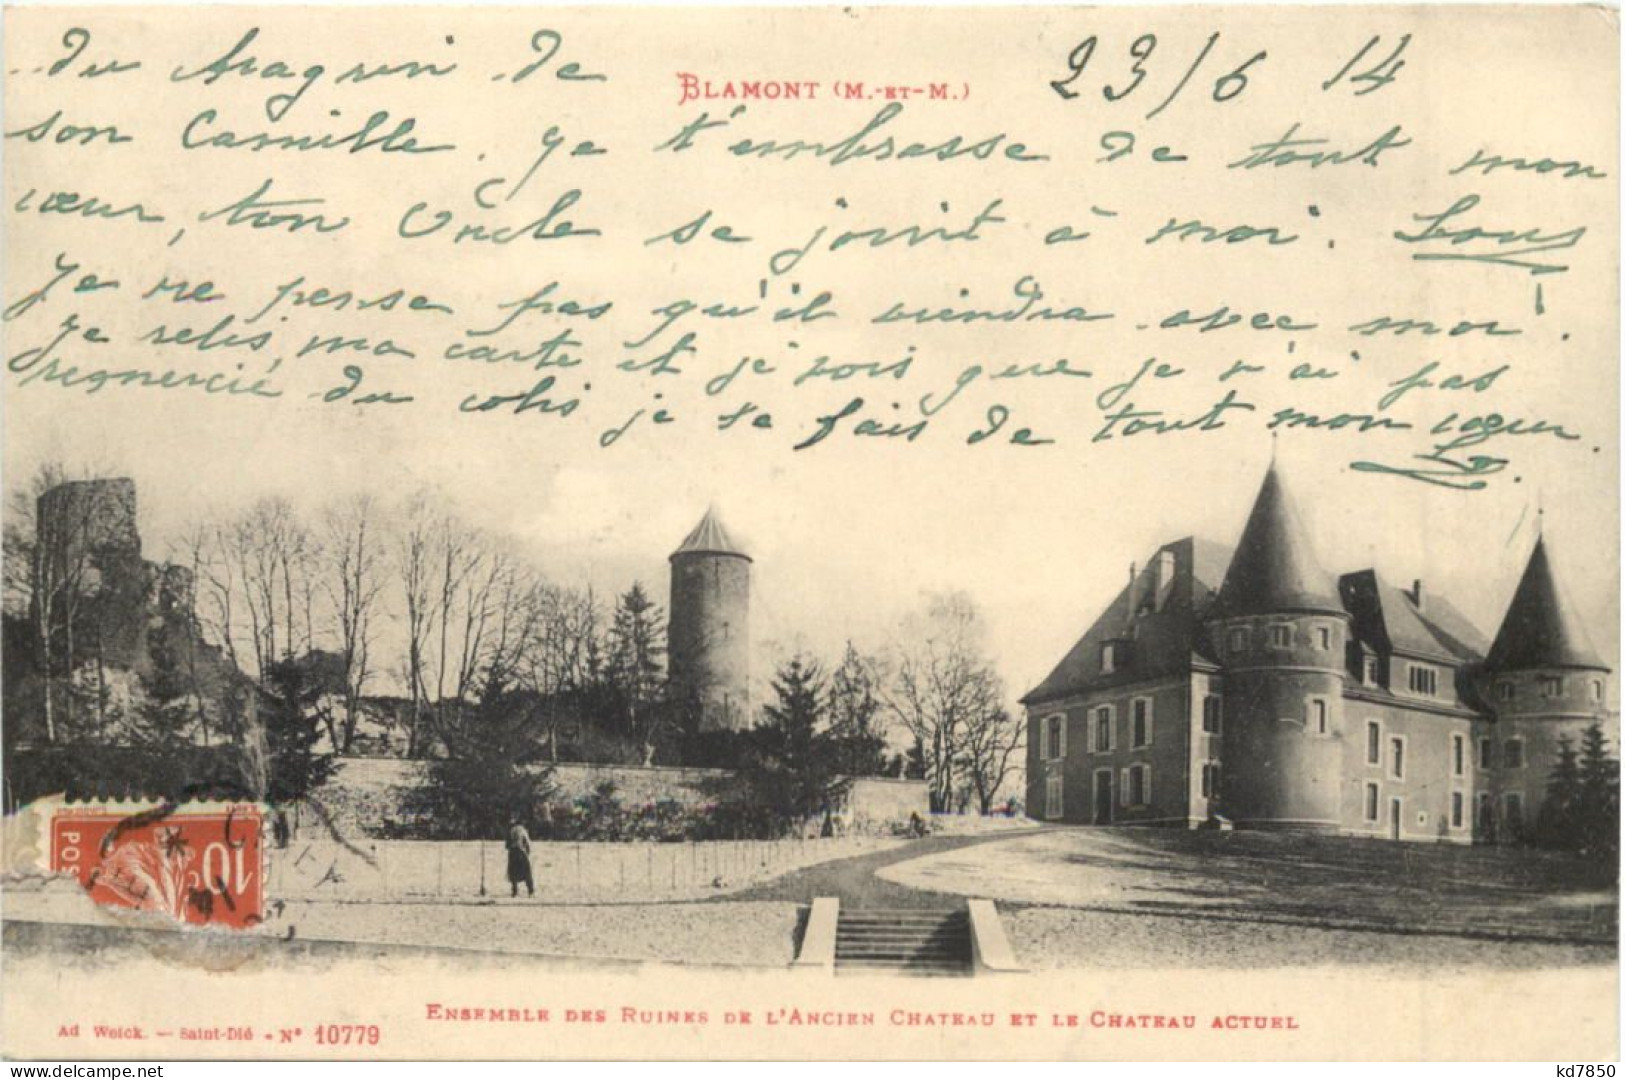 du chagrin de
BLAMONT (M.-ET-M.)
23/6 14
son Camille. Je t'embrasse de tout mon
cœur, ton Oncle se joint à moi.
Je ne pense pas qu'il viendra avec moi.
Je relis ma carte et je vois que je n'ai pas
remercié du colis je le fais de tout mon cœur.
POS
10
ENSEMBLE DES RUINES DE L'ANCIEN CHATEAU ET LE CHATEAU ACTUEL
Ad Weick. — Saint-Dié - N° 10779
kd7850